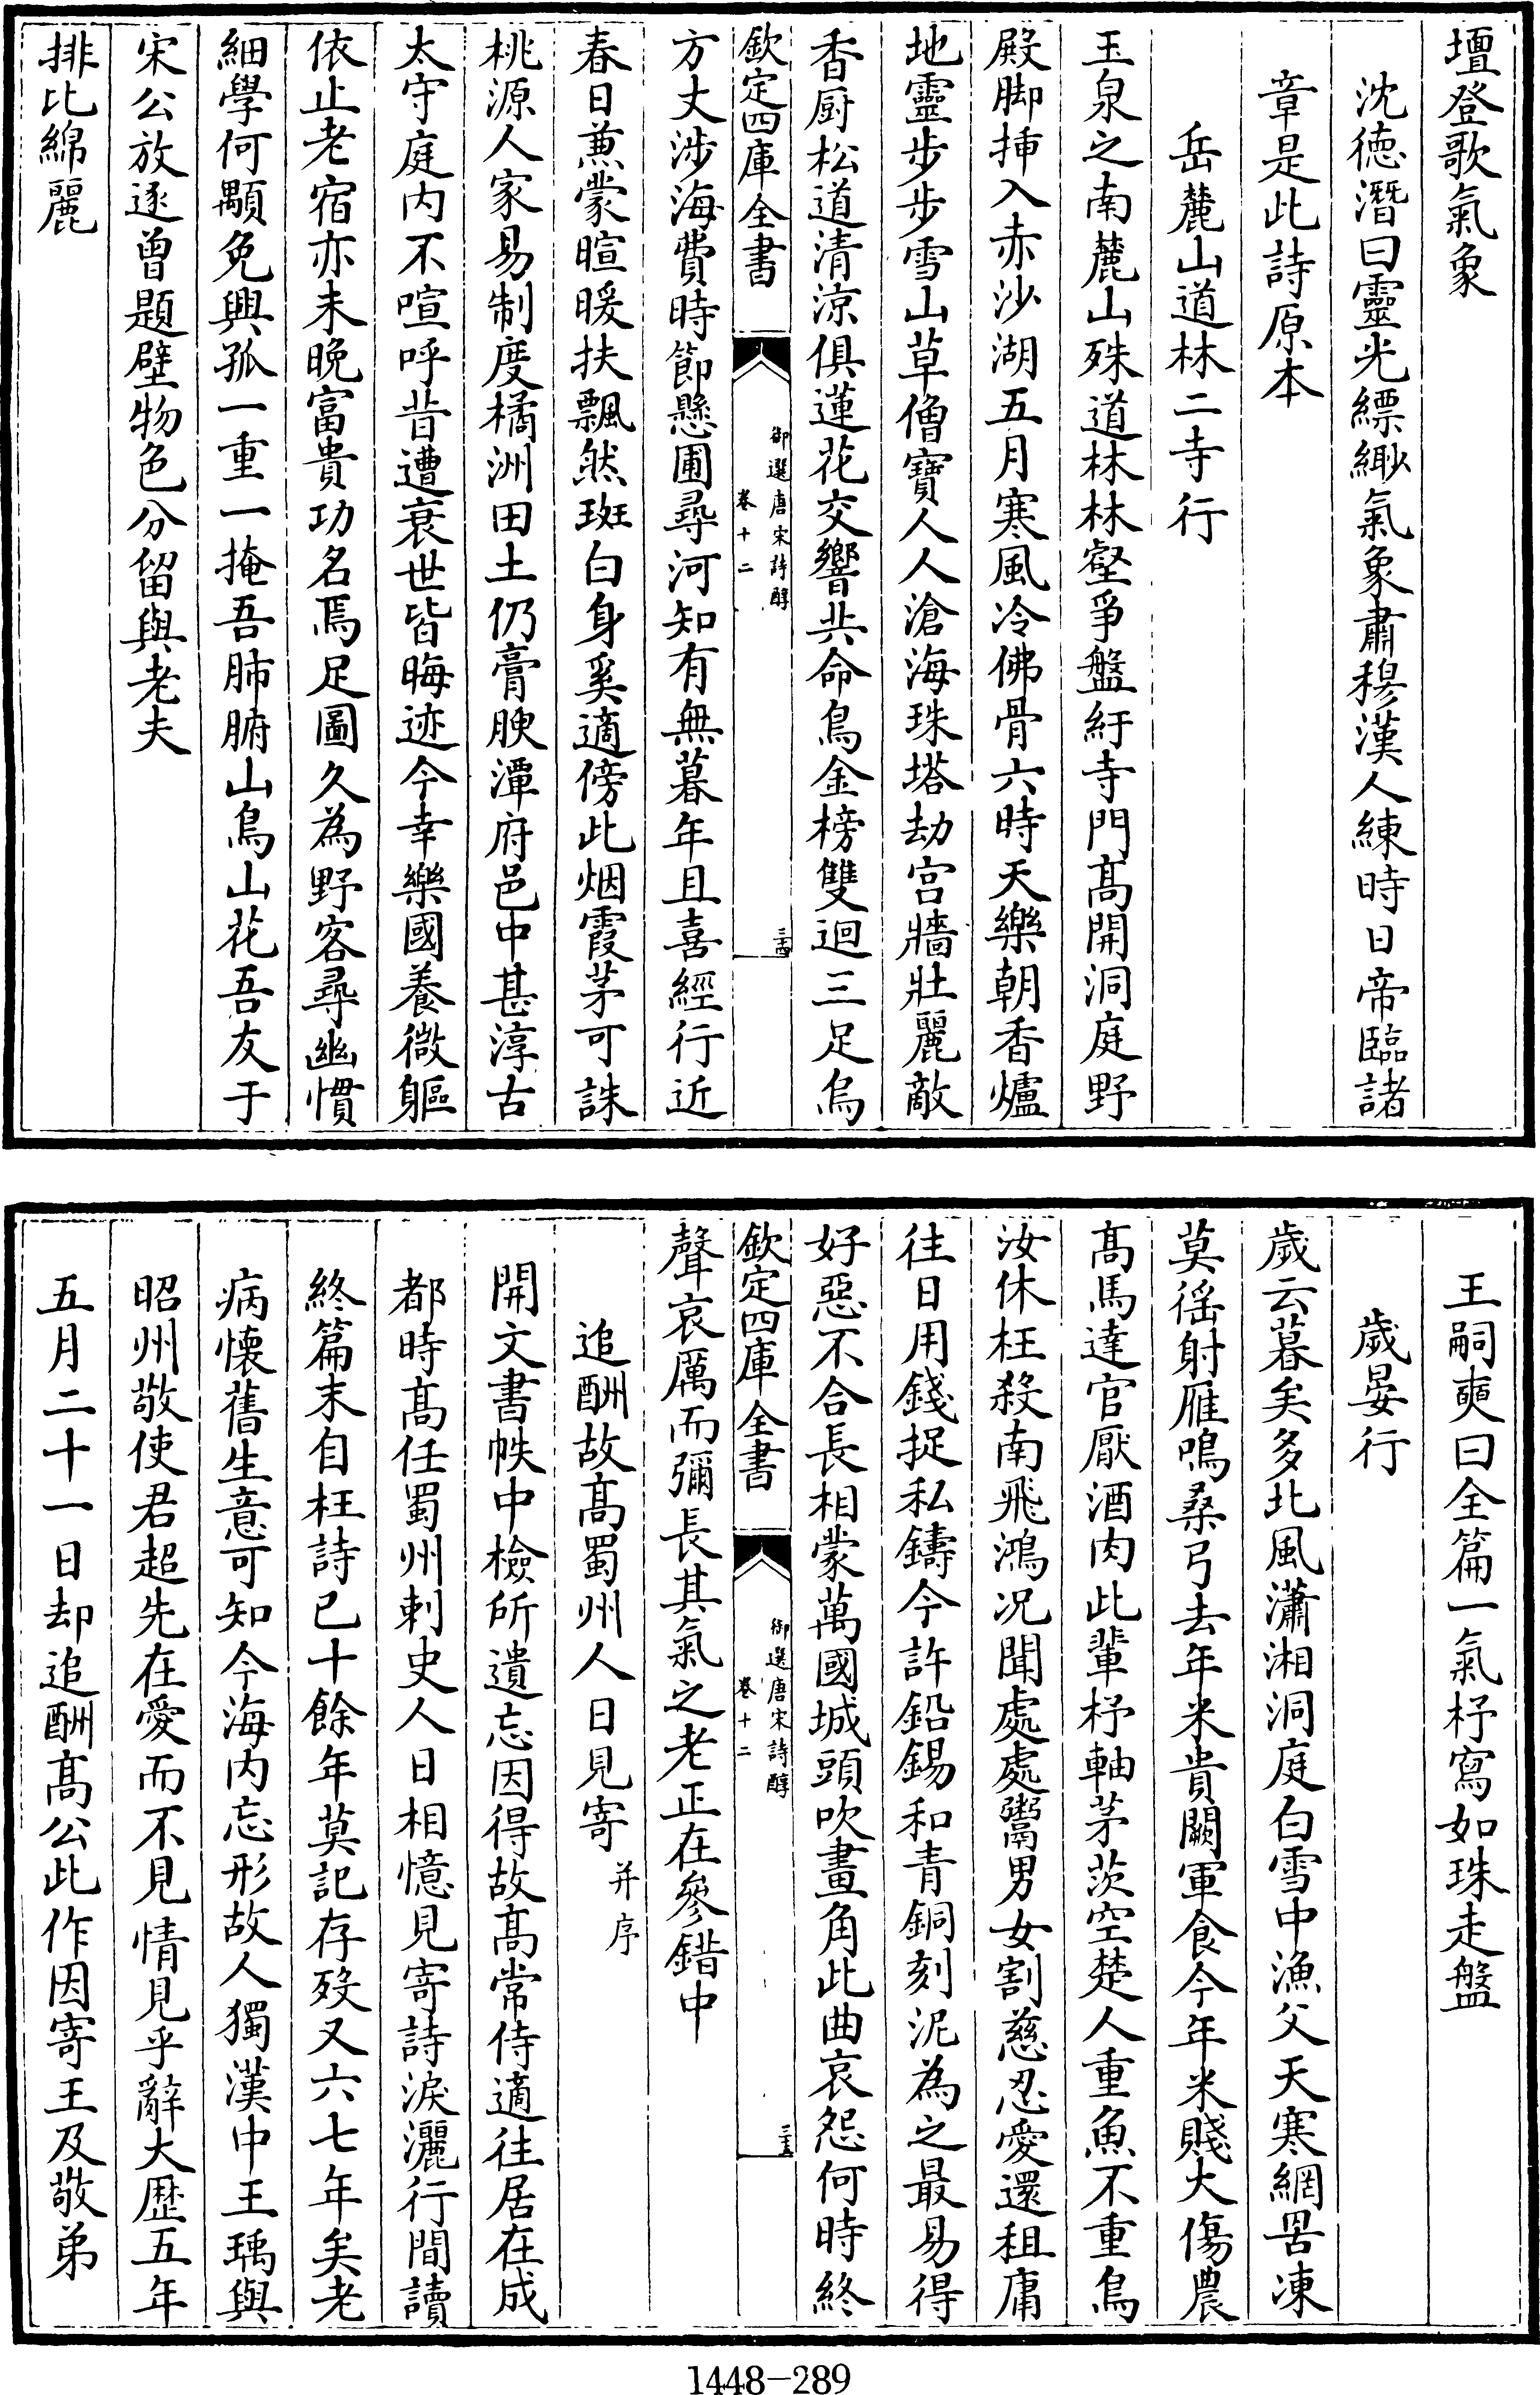 壇登歌氣象
沈徳潛曰靈光縹緲氣象肅穆漢人練時日帝臨諸
章是此詩原本
岳麓山道林二寺行
玉泉之南麓山殊道林林壑爭盤紆寺門髙開洞庭野
殿脚揷入赤沙湖五月寒風冷佛骨六時天樂朝香爐
地靈步步雪山草僧寶人人滄海珠塔劫宫牆壯麗敵
香厨松道清涼俱蓮花交響共命鳥金榜雙迴三足烏
欽定四庫全書
御選唐宋詩醇
卷十二
三四
方丈涉海費時節懸圃尋河知有無暮年且喜經行近
春日蒹蒙暄暖扶飄然斑白身奚適傍此烟霞茅可誅
桃源人家易制度橘洲田土仍膏腴潭府邑中甚淳古
太守庭内不喧呼昔遭衰世皆晦迹今幸樂國養微軀
依止老宿亦未晚富貴功名焉足圖久為野客尋幽慣
細學何顒免興孤一重一掩吾肺腑山鳥山花吾友于
宋公放逐曾題壁物色分留與老夫
排比綿麗
王嗣奭曰全篇一氣抒寫如珠走盤
歲晏行
歲云暮矣多北風瀟湘洞庭白雪中漁父天寒網罟凍
莫徭射雁鳴桑弓去年米貴闕軍食今年米賤大傷農
髙馬達官厭酒肉此輩杼軸茅茨空楚人重魚不重鳥
汝休枉殺南飛鴻况聞處處鬻男女割慈忍愛還租庸
往日用錢捉私鑄今許鉛錫和青銅刻泥為之最易得
好惡不合長相蒙萬國城頭吹畫角此曲哀怨何時終
欽定四庫全書
御選唐宋詩醇
卷十二
三五
聲哀厲而彌長其氣之老正在參錯中
追酬故髙蜀州人日見寄 并序
開文書帙中檢所遺忘因得故髙常侍適往居在成
都時髙任蜀州刺史人日相憶見寄詩淚灑行間讀
終篇末自枉詩已十餘年莫記存殁又六七年矣老
病懷舊生意可知今海内忘形故人獨漢中王瑀與
昭州敬使君超先在愛而不見情見乎辭大歴五年
五月二十一日却追酬髙公此作因寄王及敬弟
1448-289